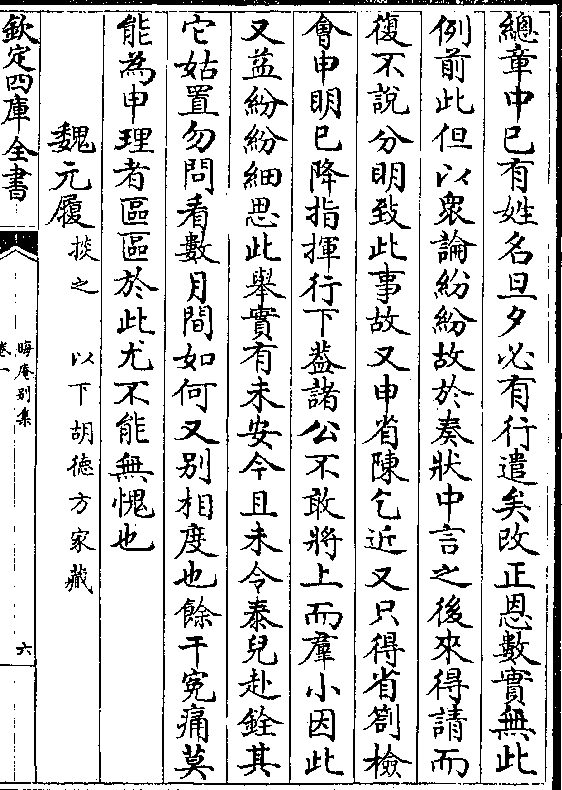 總章中已有姓名旦夕必有行遣矣改正恩數實無此
例前此但以衆論紛紛故於奏狀中言之後來得請而
復不說分明致此事故又申省陳乞近又只得省劄檢
會申明已降指揮行下葢諸公不敢將上而羣小因此
又益紛紛細思此舉實有未安今且未令泰兒赴銓其
它姑置勿問看數月間如何又别相度也餘干寃痛莫
能為申理者區區於此尤不能無愧也
魏元履掞之 以下胡德方家藏
欽定四庫全書
晦庵别集
卷一
六